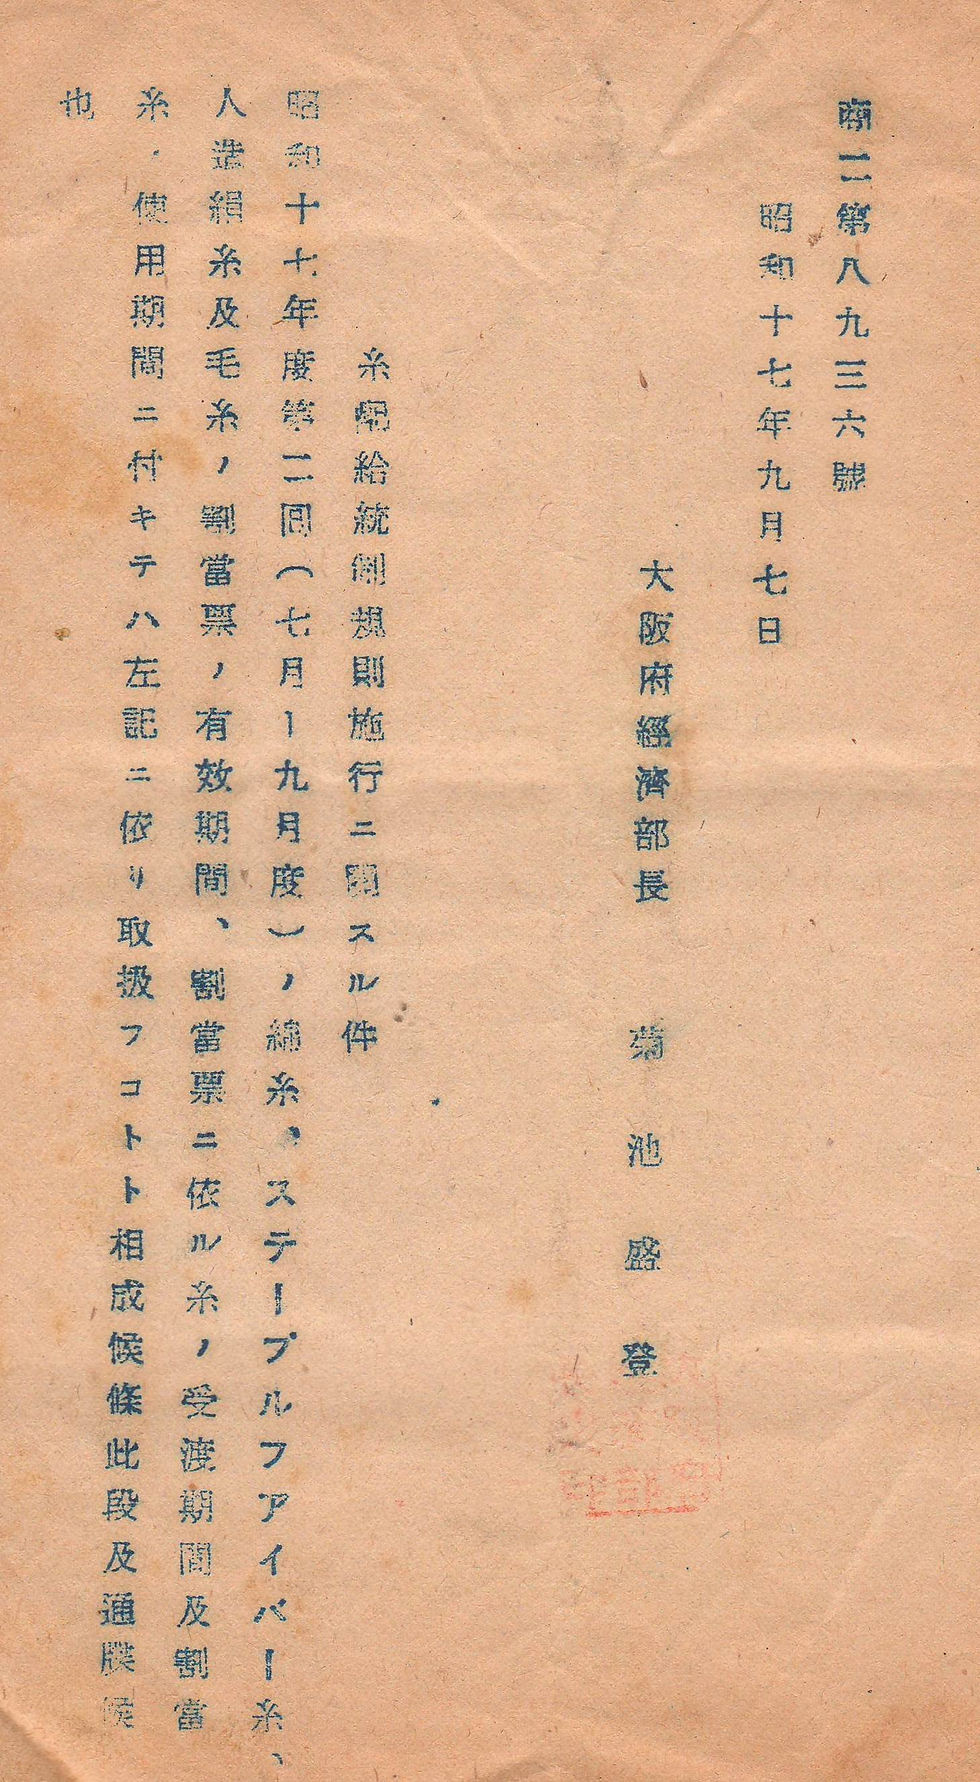 商二第八九三六號
昭和十七年九月七日
大阪府經濟部長 菊池盛登
糸配給統制規則施行ニ關スル件
昭和十七年度第二回(七月ー九月度)ノ綿糸、ステープルフアイバー糸、
人造絹糸及毛糸ノ割當票ノ有效期間、割當票ニ依ル糸ノ受渡期間及割當
糸ノ使用期間ニ付キテハ左記ニ依リ取扱フコトト相成候條此段及通牒候
也